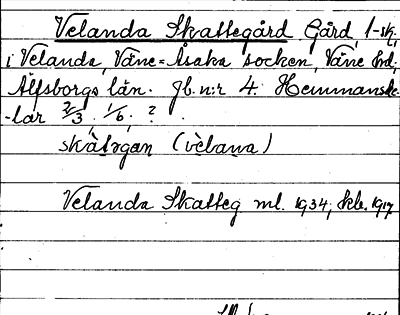 Velanda Skattegård, Gård, 1-sk,
i Velanda, Väne=Åsaka socken, Väne hd,
Älfsborgs län. Jb. n:r 4. Hemmansde-
-lar 2/3. 1/6. ?
skàtgan (vèlana)
Velanda Skatteg ml. 1934, skb. 1917